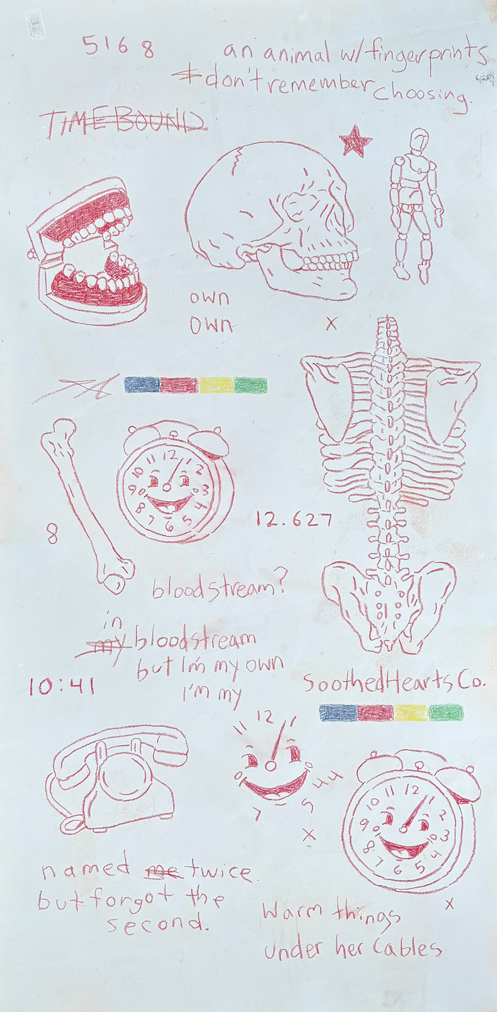 5168
an animal w/ fingerprints
≠ don't remember choosing.
TIMEBOUND
own
own
x
12
11
1
10
2
9
3
8
4
7
5
6
8
12.627
bloodstream?
in
my bloodstream
but I'm my own
I'm my
10:41
SoothedHearts Co.
12
11
44
5
7
x
12
11
1
10
2
9
3
8
4
7
5
6
x
named me twice.
but forgot the
second.
Warm things
under her cables